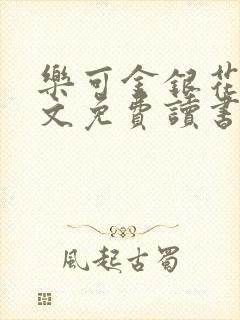 樂可金銀花
文免費讀書
風起古蜀